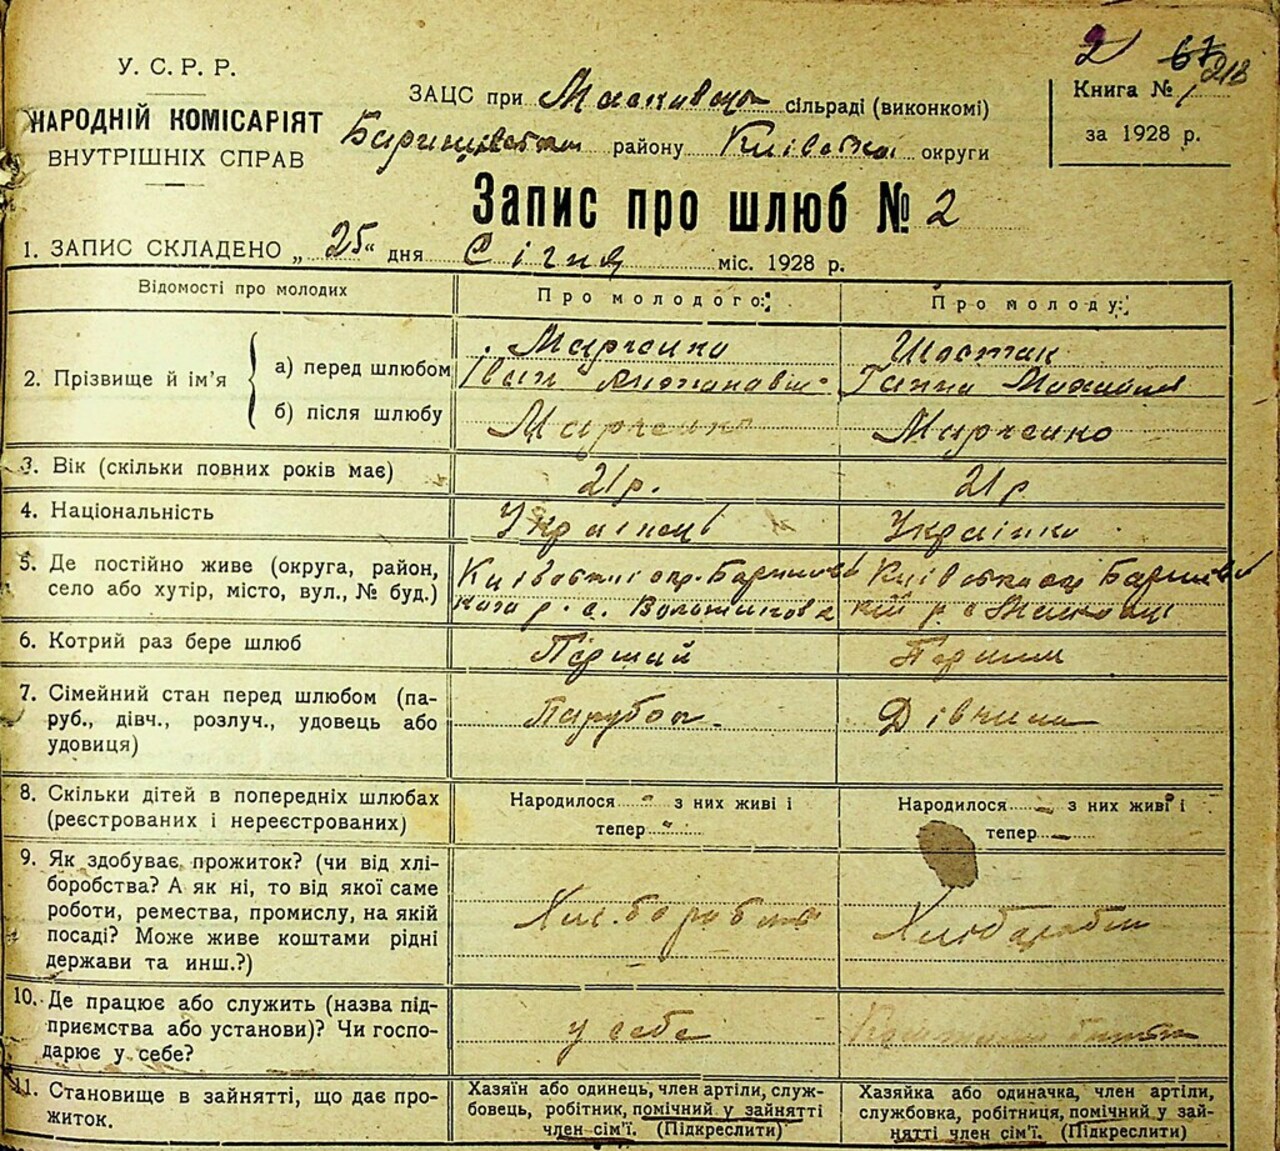 2 67 218
У. С. Р. Р.
НАРОДНІЙ КОМІСАРІЯТ
ВНУТРІШНІХ СПРАВ
ЗАЦС при сільраді (виконкомі)
району округи
Книга № 1
за 1928 р.
Запис про шлюб № 2
1. ЗАПИС СКЛАДЕНО „25“ дня Січня міс. 1928 р.
Відомості про молодих Про молодого: Про молоду:
2. Прізвище й ім'я
а) перед шлюбом Марченко Шостак
Іван Ганна
б) після шлюбу Марченко Марченко
3. Вік (скільки повних років має) 21 р. 21 р
4. Національність Українець Українка
5. Де постійно живе (округа, район,
село або хутір, місто, вул., № буд.)
6. Котрий раз бере шлюб Перший
7. Сімейний стан перед шлюбом (па-
руб., дівч., розлуч., удовець або Парубок Дівчина
удовиця)
8. Скільки дітей в попередніх шлюбах Народилося - з них живі і Народилося - з них живі і
(реєстрованих і нереєстрованих) тепер " тепер -
9. Як здобуває прожиток? (чи від хлі-
боробства? А як ні, то від якої саме
роботи, ремества, промислу, на якій
посаді? Може живе коштами рідні
держави та инш.?)
10. Де працює або служить (назва під-
приємства або установи)? Чи госпо- у себе
дарює у себе?
11. Становище в зайнятті, що дає про-
житок.
Хазяїн або одинець, член артіли, служ-
бовець, робітник, помічний у зайнятті
член сім'ї. (Підкреслити)
Хазяйка або одиначка, член артіли,
службовка, робітниця, помічний у зай-
нятті член сім'ї. (Підкреслити)